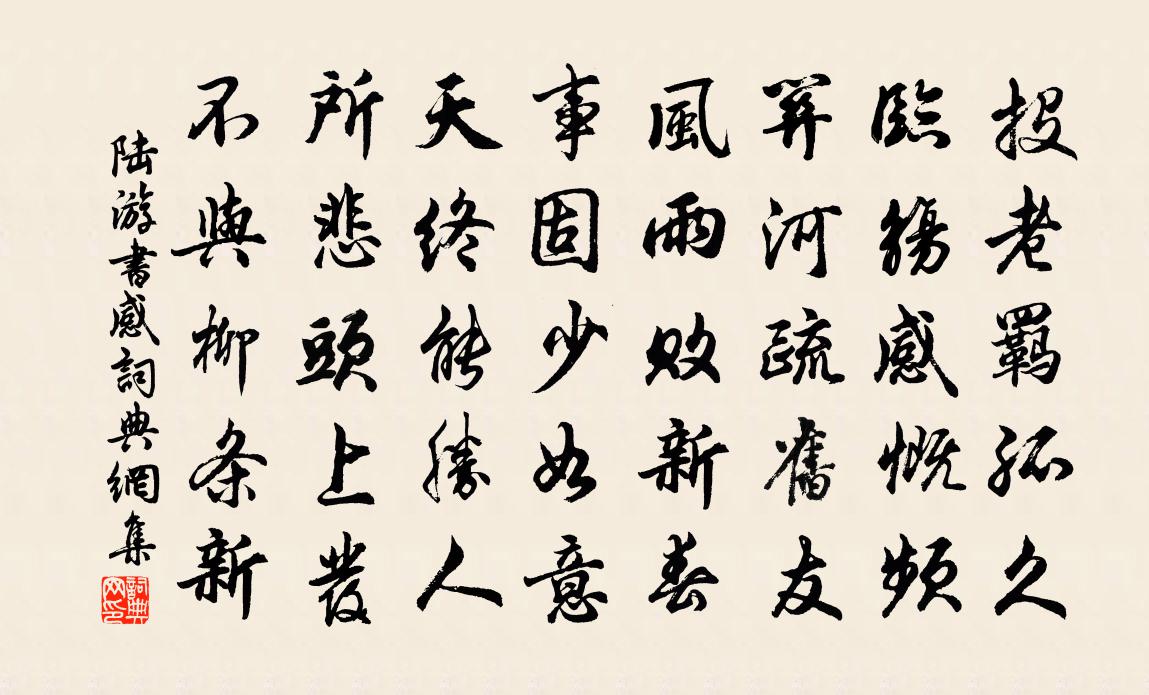 投老羈孤久
臨觴感慨頻
關河疏舊友
風雨敗新春
事固少如意
天終能勝人
所悲頭上發
不與柳条新
陆游書感詞典網集
詞典网印